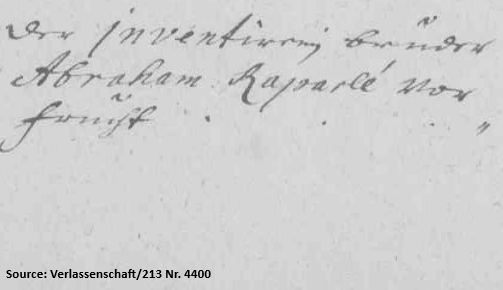 Der Inventirerin bruder
Abraham Raparlé vor
frucht . . . . "
Source: Verlassenschaft/213 Nr. 4400